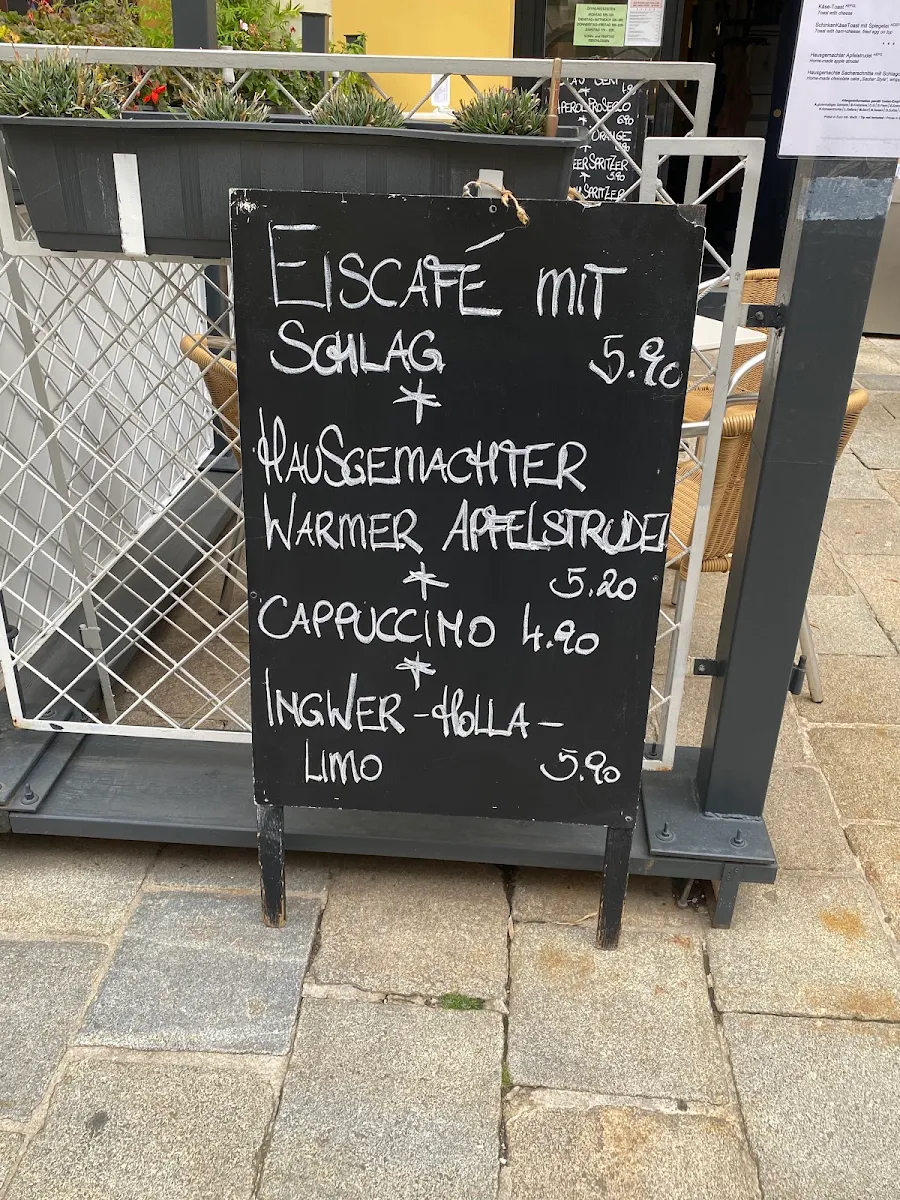 Käse-Toast
Toast with cheese
SchinkenKäseToast mit Spiegelei
Toast with ham+cheese, fried egg on top
Hausgemachter Apfelstrudel
Home-made apple strudel
Hausgemachte Sacherschnitte mit Schlag
ÖFFNUNGSZEITEN
APEROL PROSECCO
6.90
ORANGE
SPRITZER
5.90
SPRITZER
EISCAFÉ MIT
SCHLAG 5.90
*
HAUSGEMACHTER
WARMER APFELSTRUDEL
* 5.20
CAPPUCCINO 4.90
*
INGWER-HOLLA-
LIMO 5.90